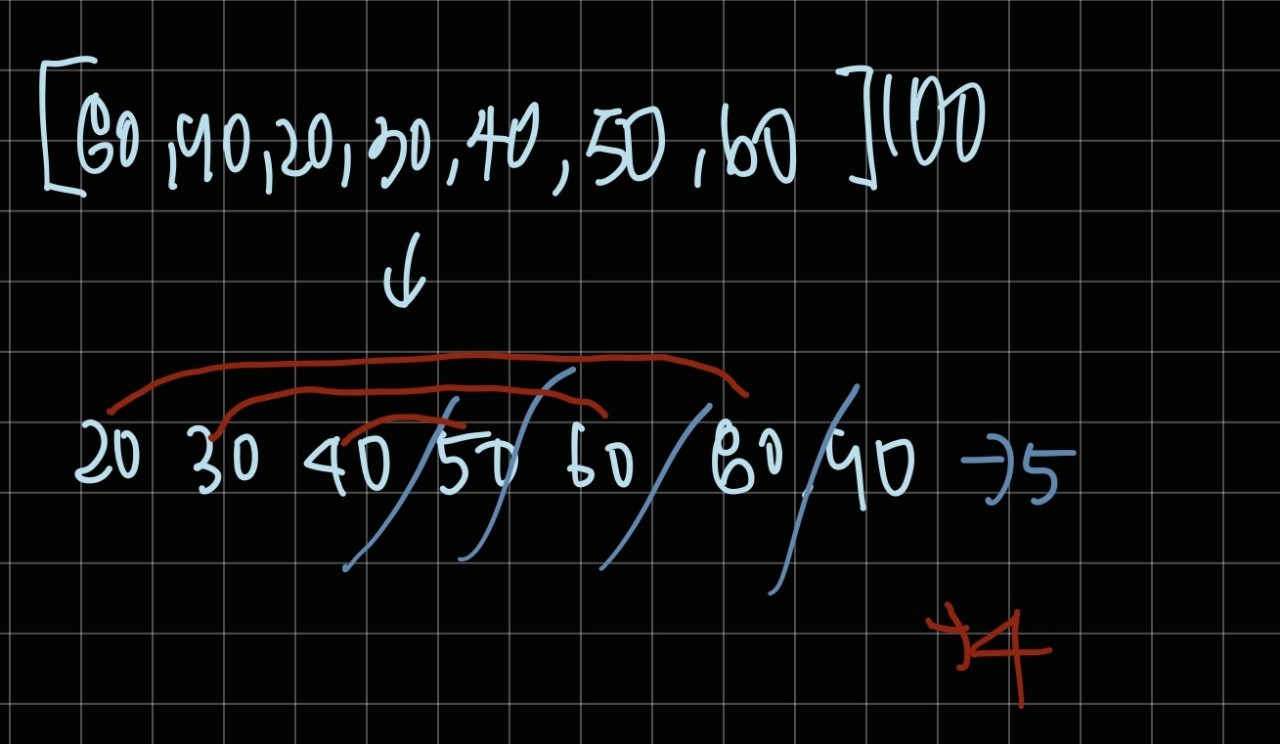 [80,90,20,30,40,50,60]100
↓
20 30 40 / 50 / 60 / 80 / 90 → 5
→ 4